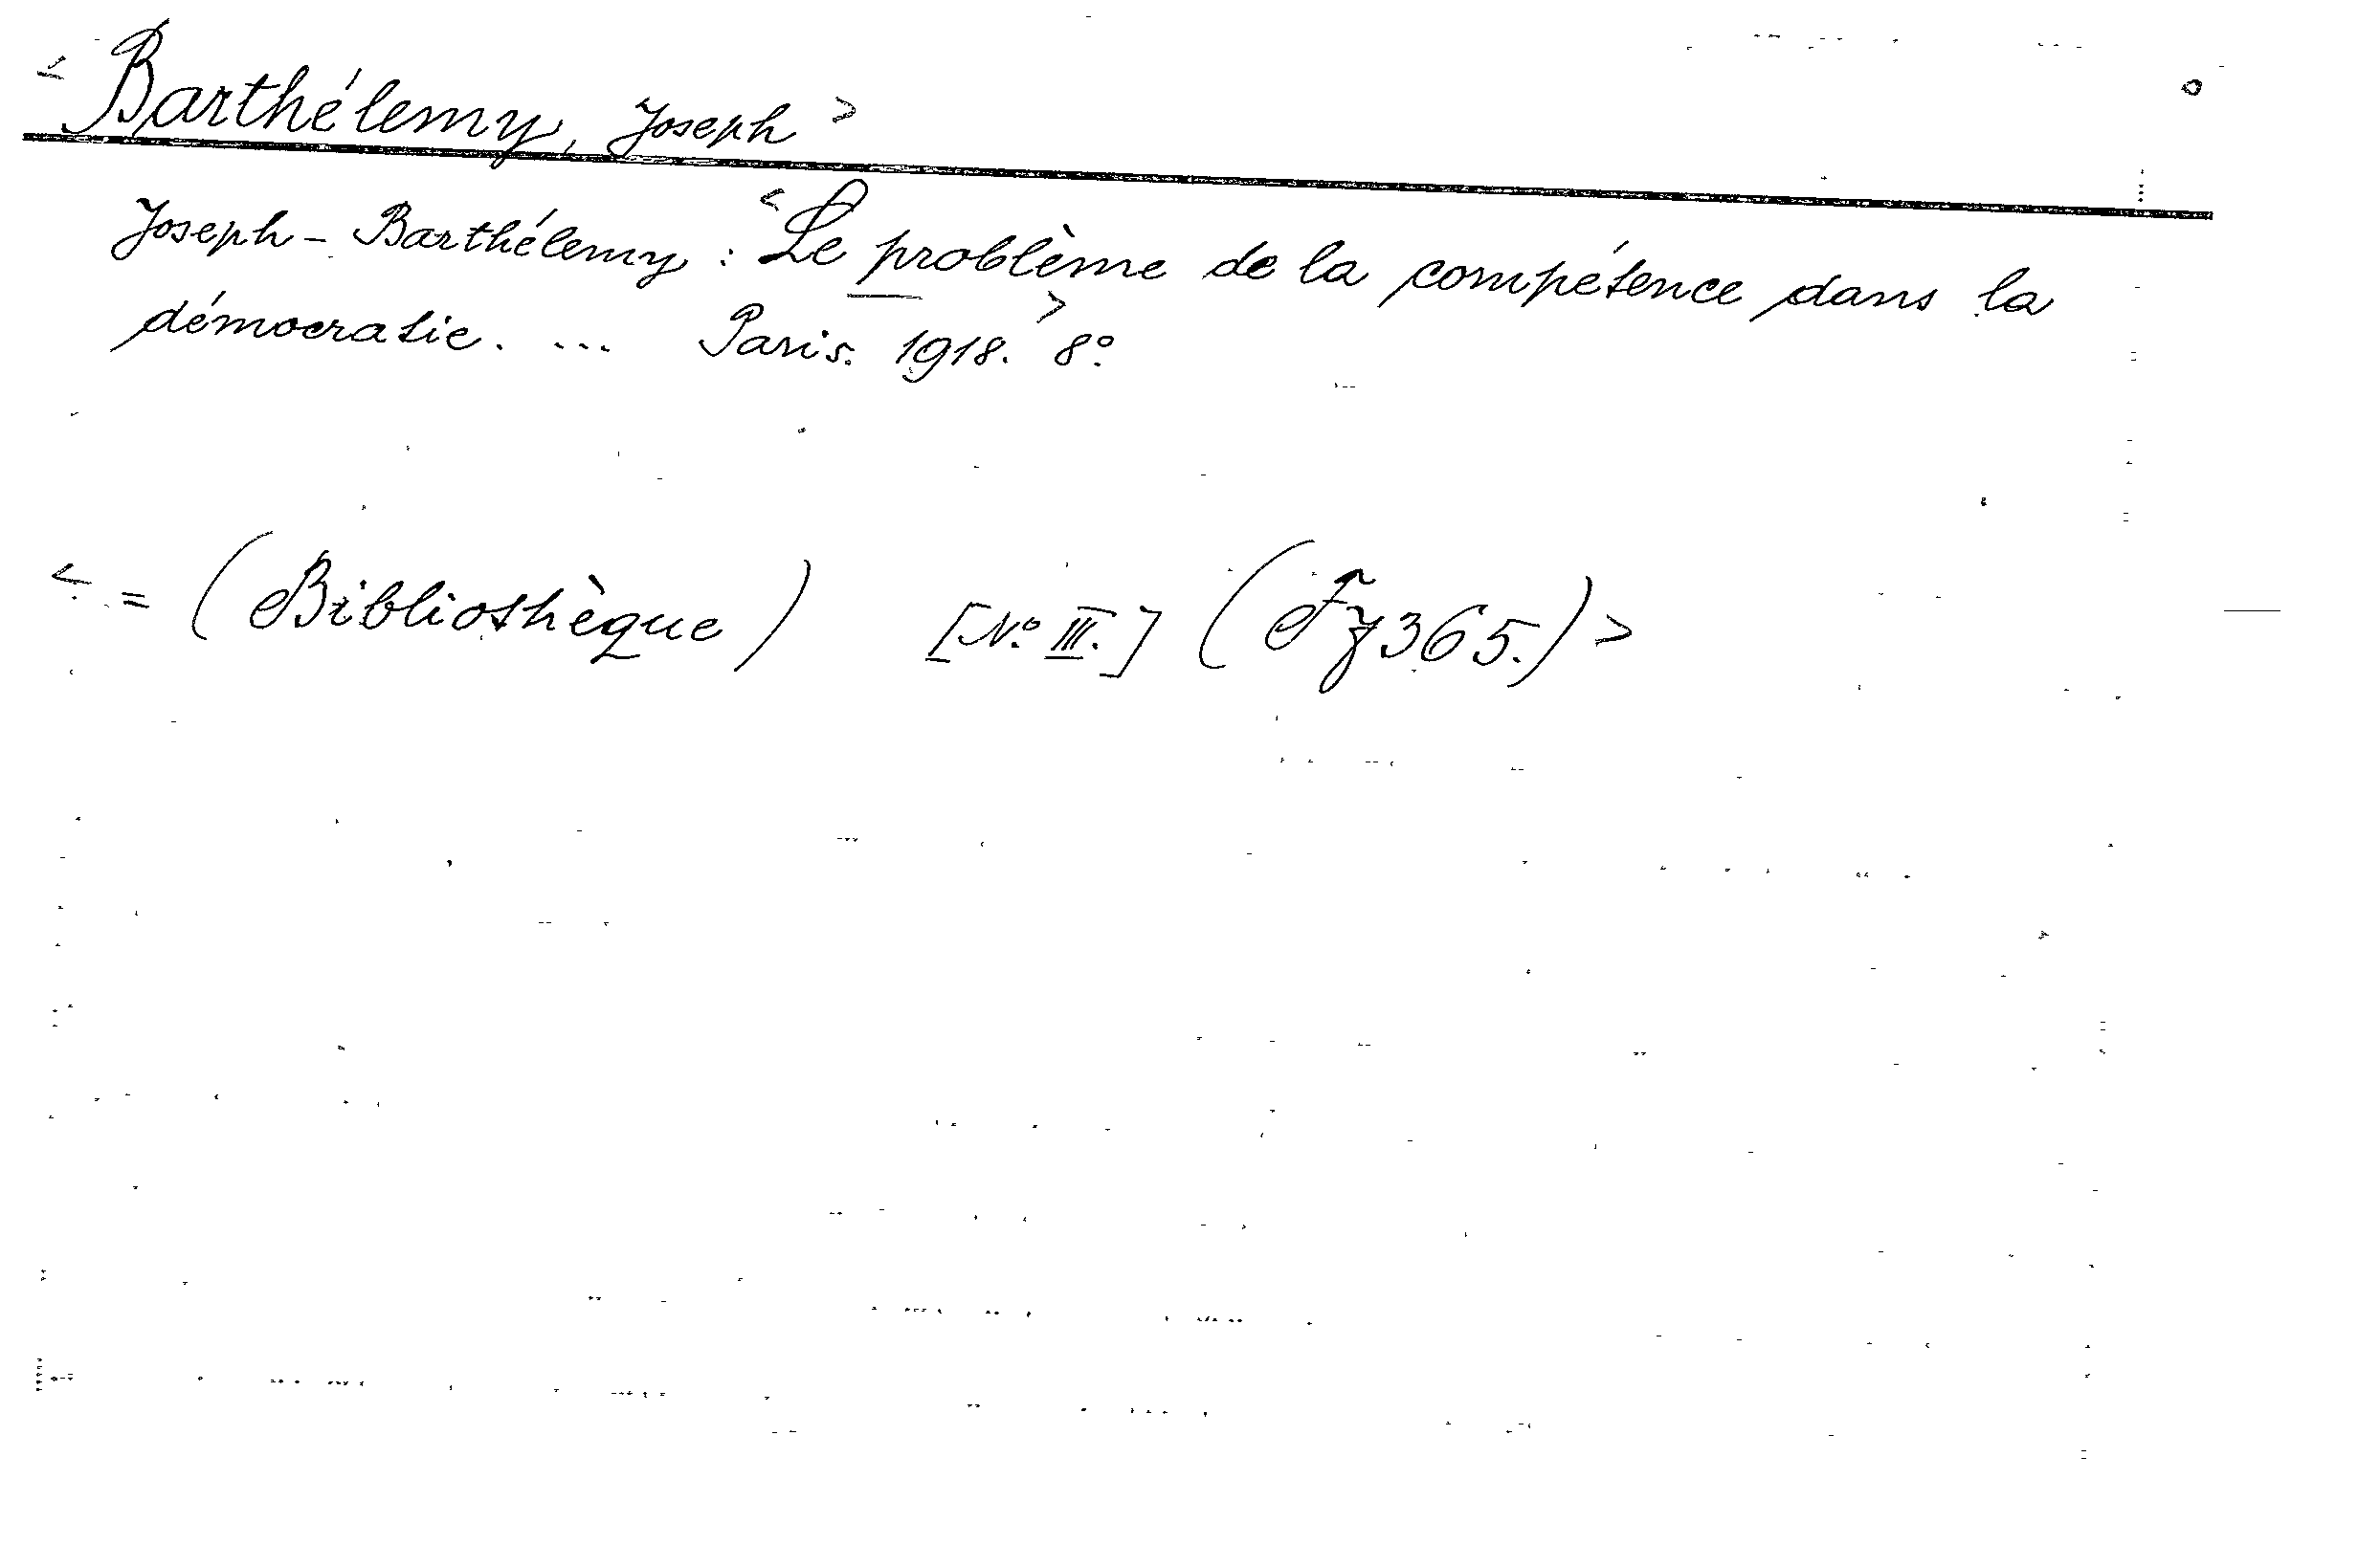 < Barthélemy, Joseph >
Joseph-Barthélemy: < Le problème de la compétence dans la
démocratie. ... Paris. 1918. > 8º.
< = (Bibliothèque) [Nº III.] (Fz 365.) >